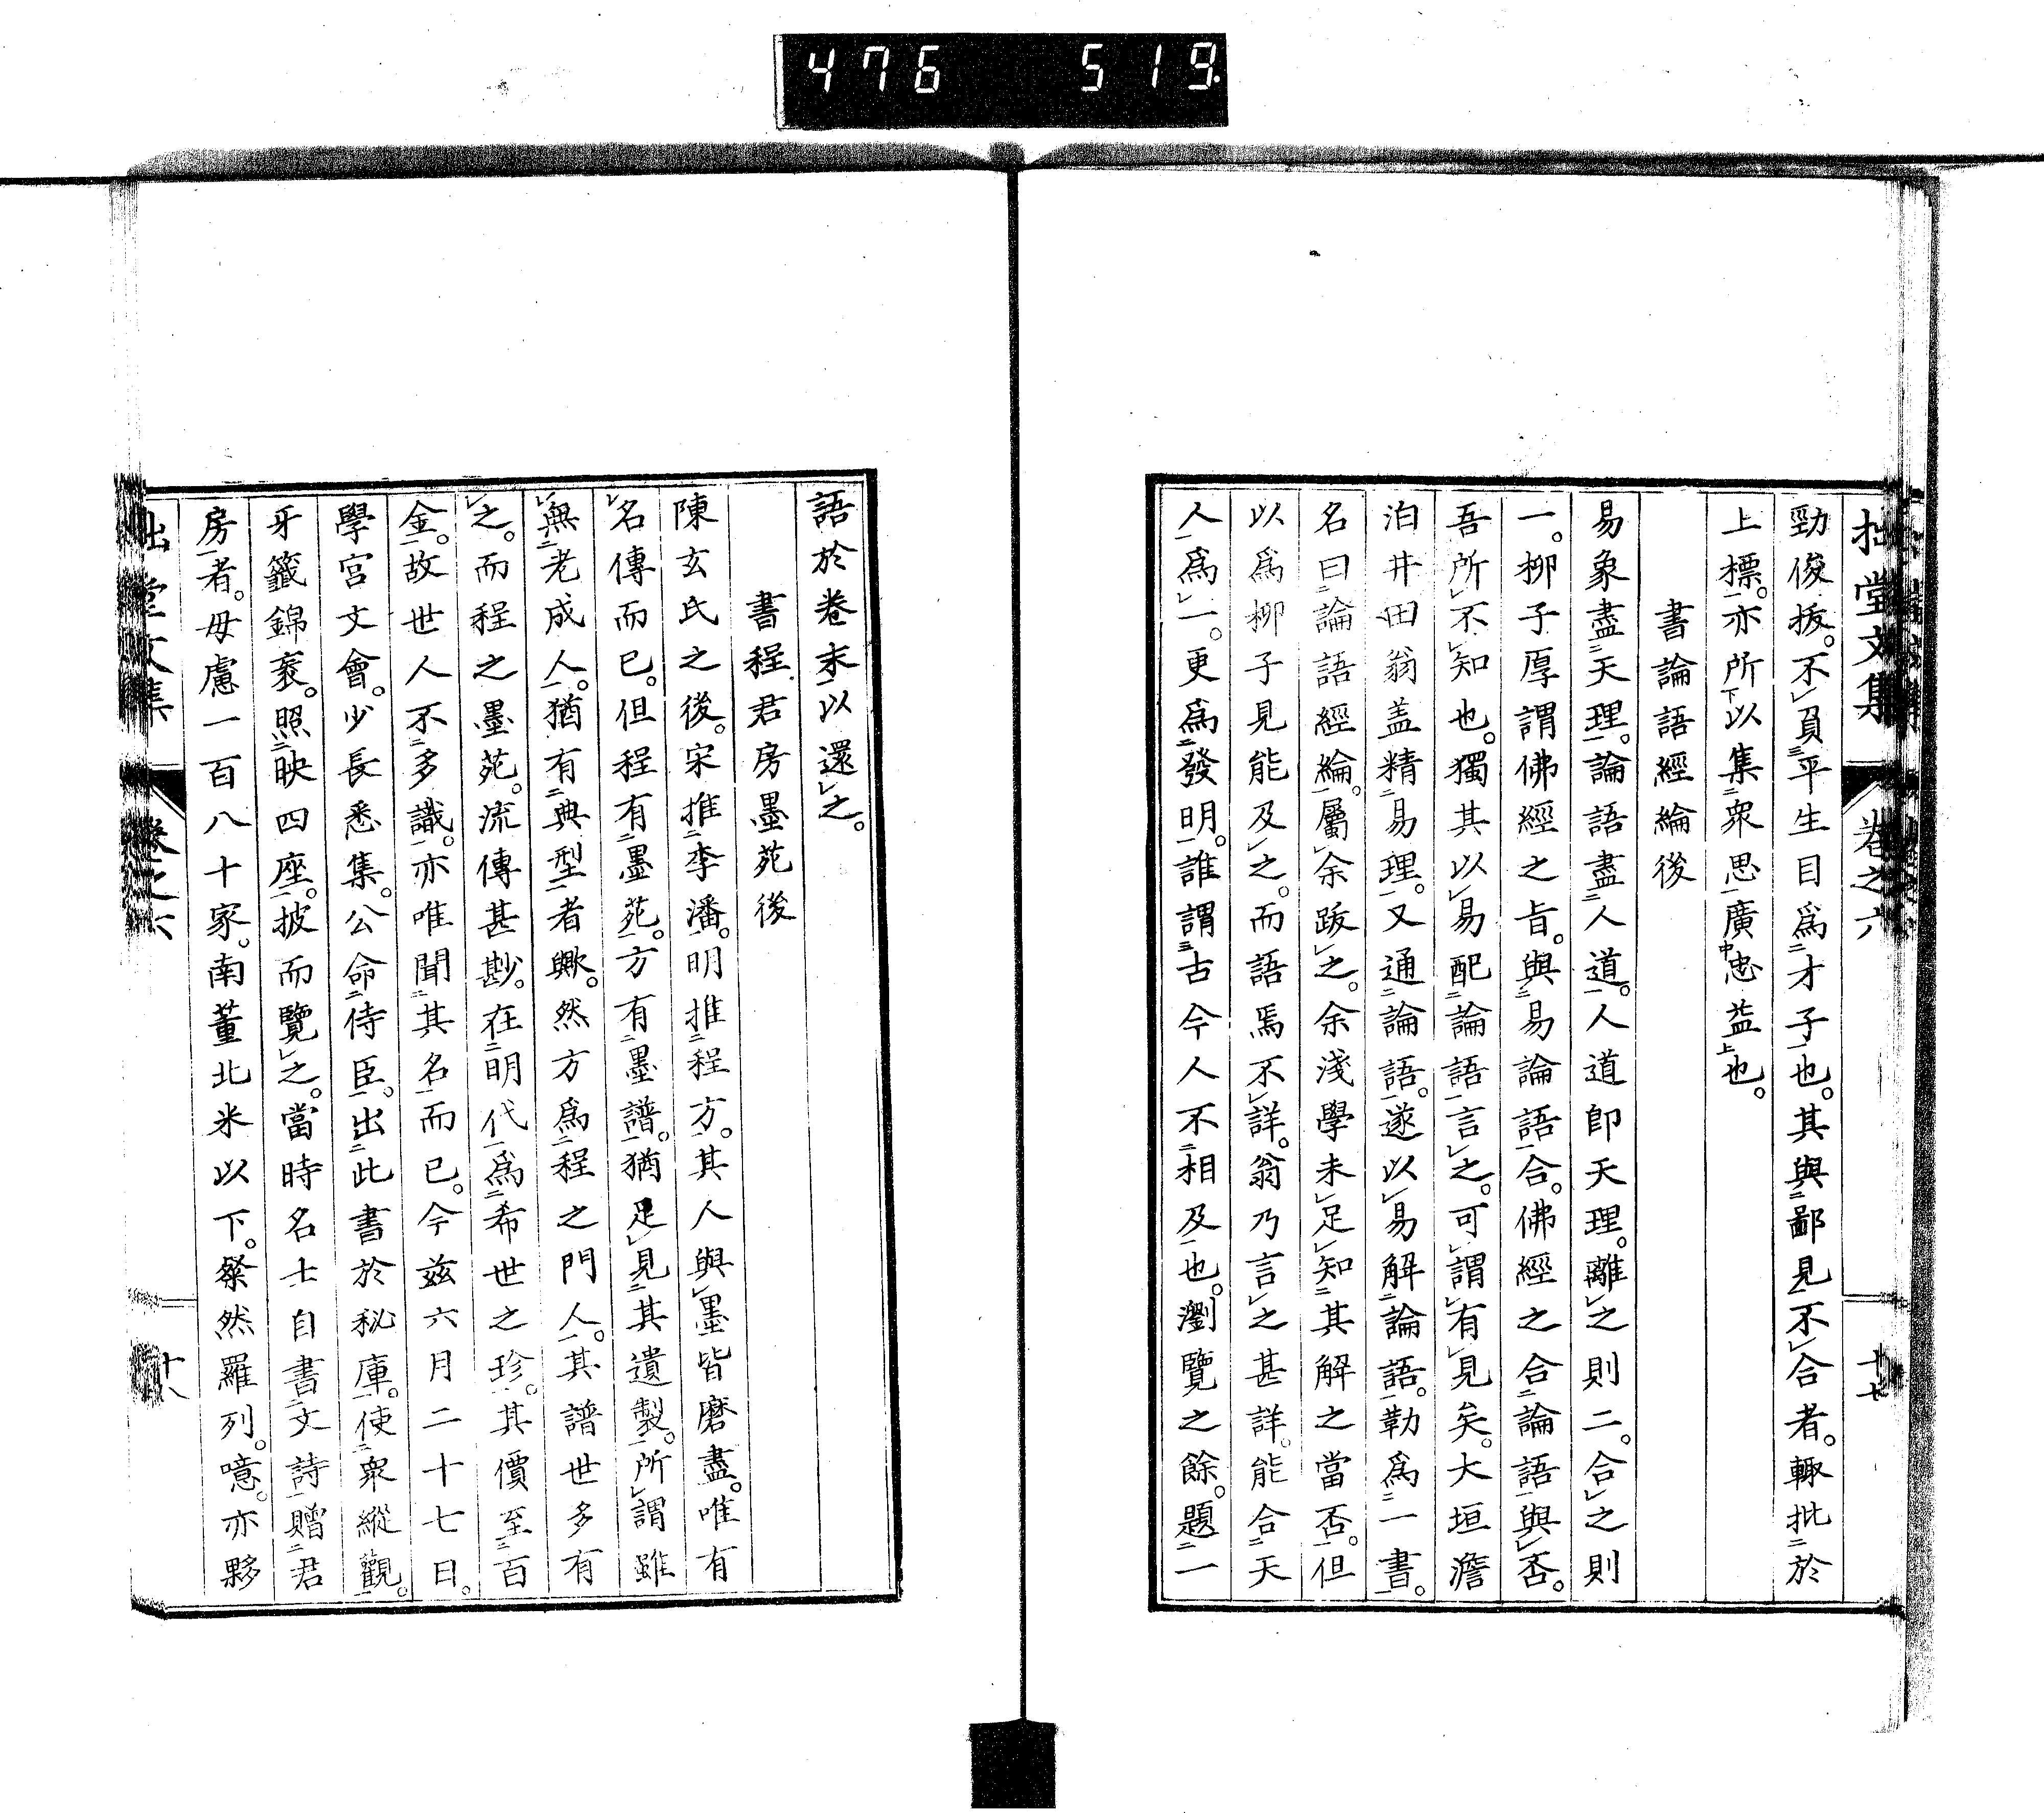 476 519
拙堂文集 卷之六 十七
勁俊拔。不負平生目爲才子也。其與鄙見不合者。輙批於
上標。亦所以集衆思廣忠益也。
書論語經綸後
易象盡天理。論語盡人道。人道卽天理。離之則二。合之則
一。柳子厚謂佛經之旨。與易論語合。佛經之合論語與否。
吾所不知也。獨其以易配論語言之。可謂有見矣。大垣澹
泊井田翁盖精易理。又通論語。遂以易解論語。勒爲一書。
名曰論語經綸。屬余跋之。余淺學未足知其解之當否。但
以爲柳子見能及之。而語焉不詳。翁乃言之甚詳。能合天
人爲一。更爲發明。誰謂古今人不相及也。瀏覽之餘。題一
語於卷末以還之。
書程君房墨苑後
陳玄氏之後。宋推李潘。明推程方。其人與墨皆磨盡。唯有
名傳而已。但程有墨苑。方有墨譜。猶足見其遺製。所謂雖
無老成人。猶有典型者歟。然方爲程之門人。其譜世多有
之。而程之墨苑。流傳甚尠。在明代爲希世之珍。其價至百
金。故世人不多識。亦唯聞其名而已。今茲六月二十七日。
學宮文會。少長悉集。公命侍臣。出此書於秘庫。使衆縱觀。
牙籤錦袠。照映四座。披而覽之。當時名士自書文詩贈君
房者。毋慮一百八十家。南董北米以下。粲然羅列。噫。亦夥
拙堂文集 卷之六 十八